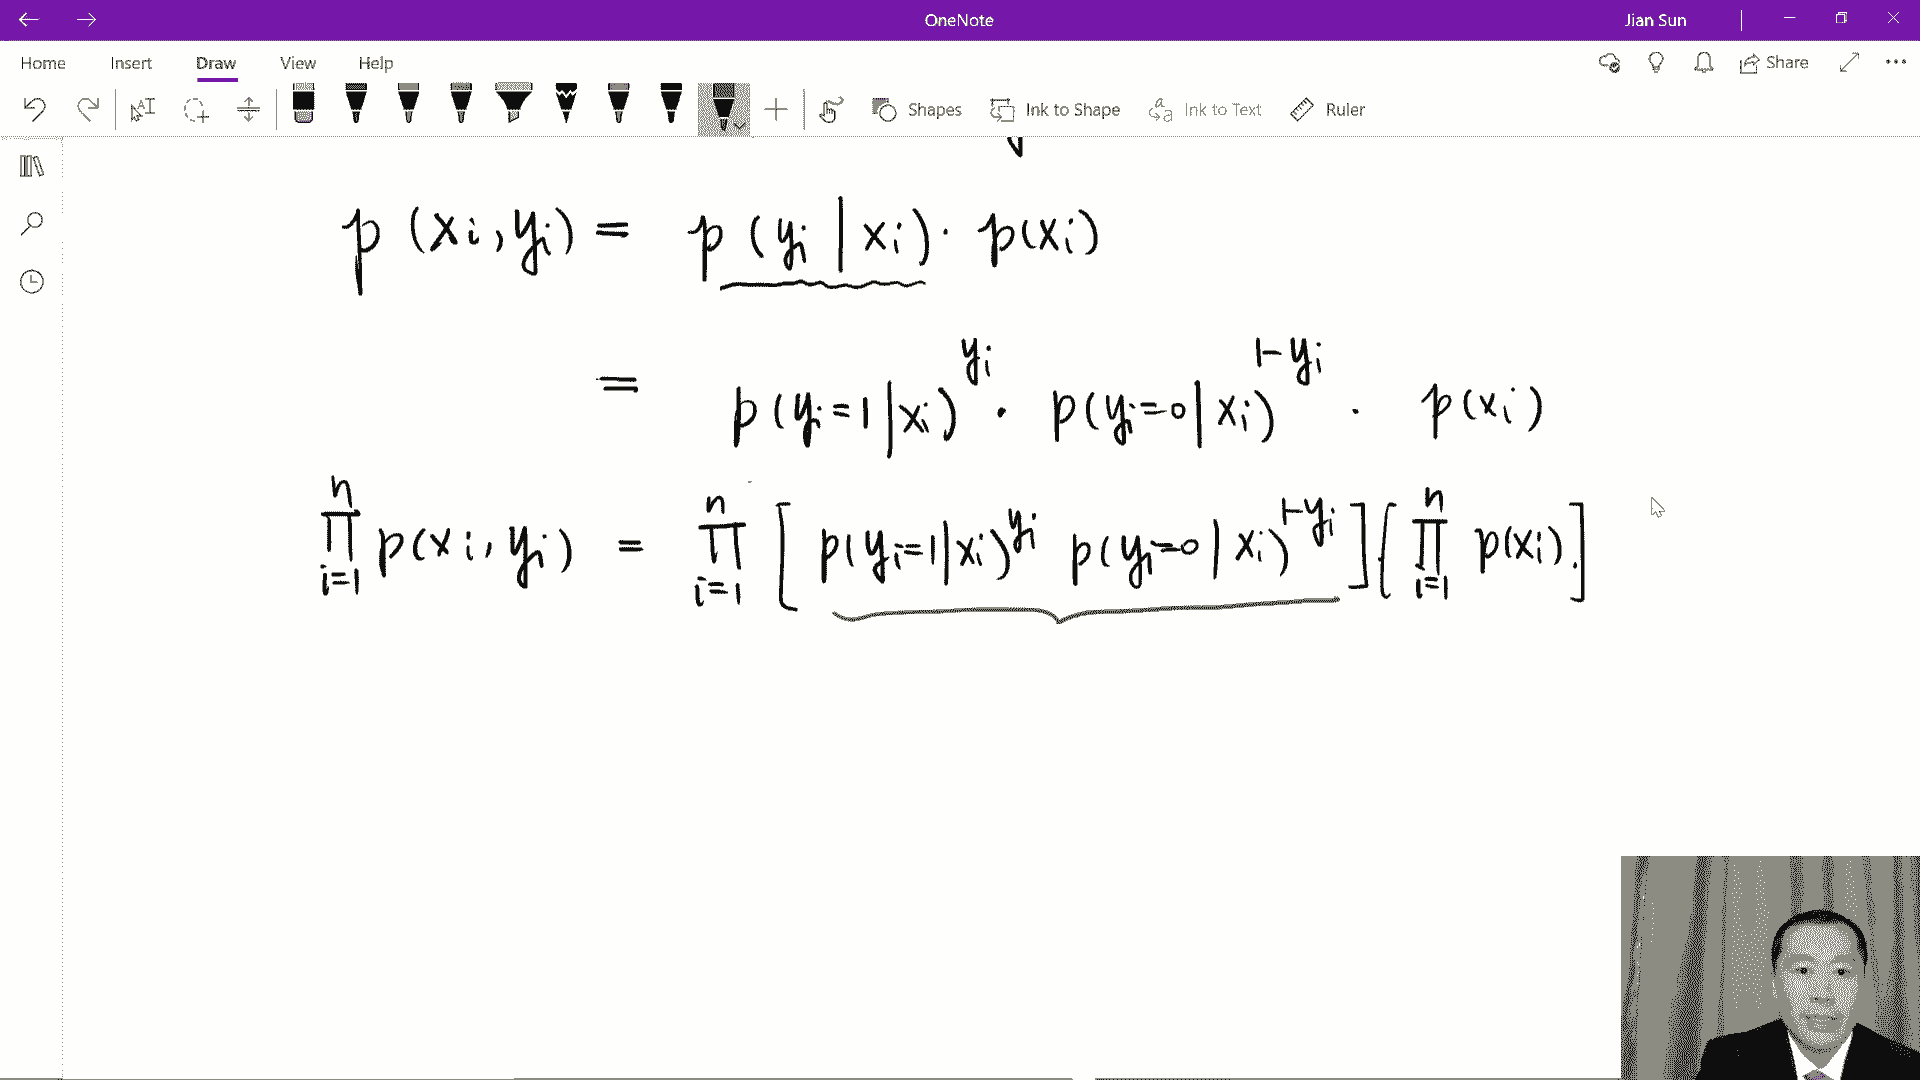 OneNote
Jian Sun
Home Insert Draw View Help
Share
Shapes Ink to Shape Ink to Text Ruler
p (xi, yi) = p (yi | xi) · p(xi)
= p(yi=1|xi)^yi · p(yi=0|xi)^1-yi · p(xi)
n ∏ i=1 p(xi, yi) = n ∏ i=1 [ p(yi=1|xi)^yi p(yi=0|xi)^1-yi ] [ n ∏ i=1 p(xi). ]